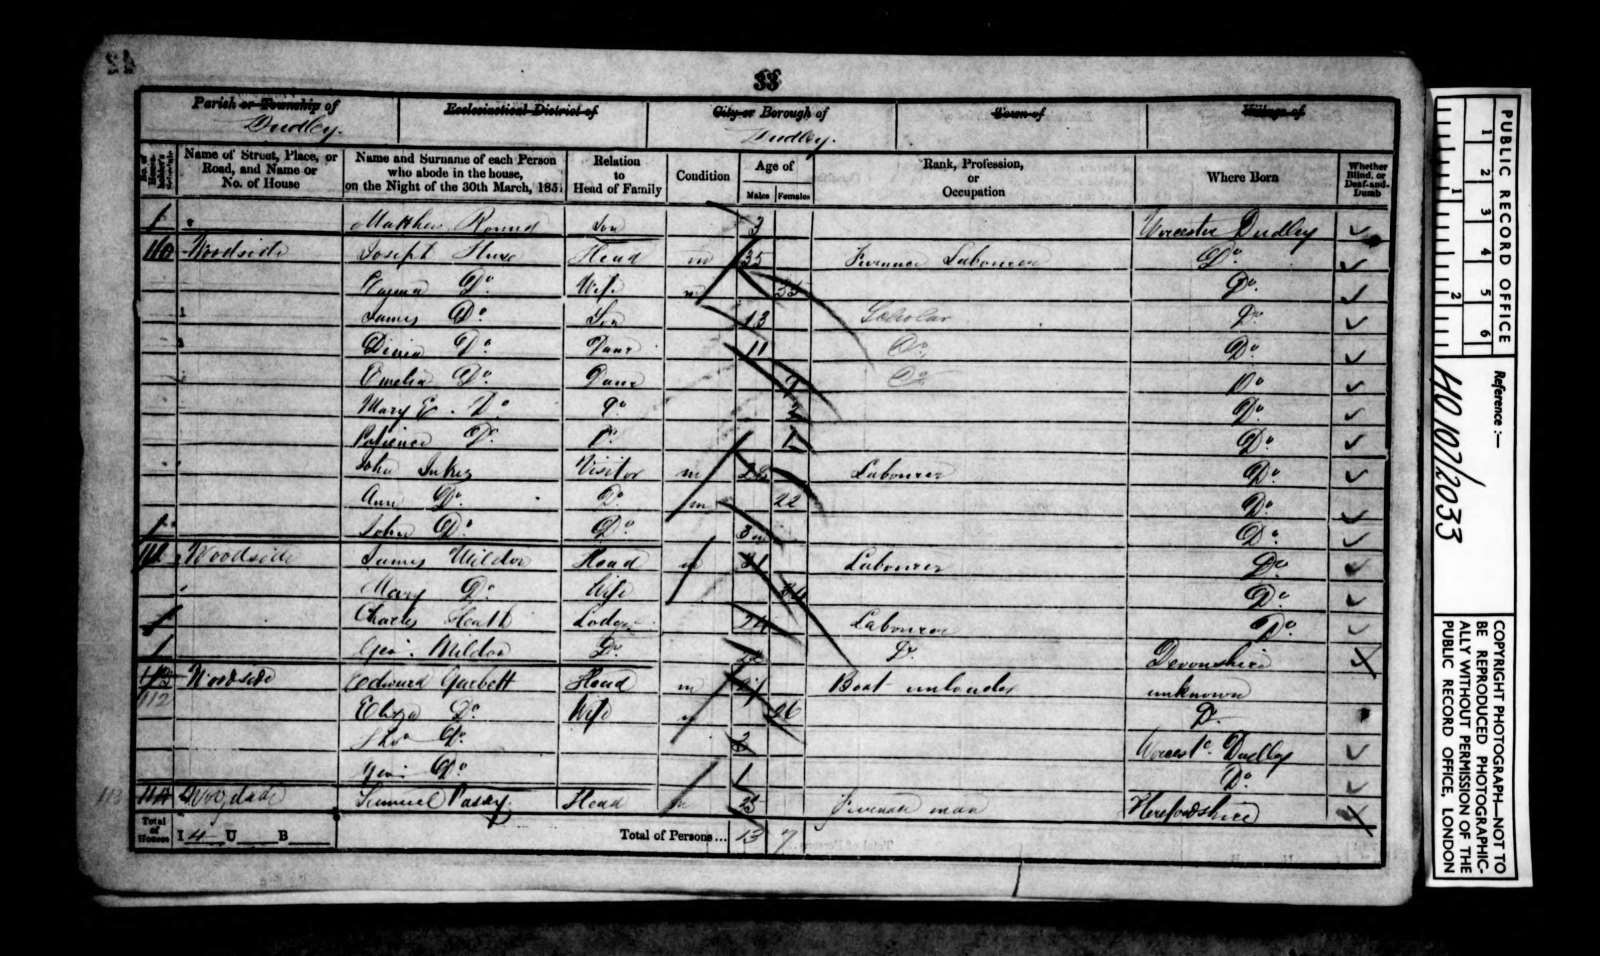 33
Parish or Township of
Dudley.
Ecclesiastical District of
City or Borough of
Dudley.
Town of
Village of
No. of House-holder's Schedule
Name of Street, Place, or Road, and Name or No. of House
Name and Surname of each Person who abode in the house, on the Night of the 30th March, 1851
Relation to Head of Family
Condition
Age of
Males Females
Rank, Profession, or Occupation
Where Born
Whether Blind, or Deaf-and-Dumb
Matthew Round Son 3 Worcester Dudley
110 Woodside Joseph Head m 35 Furnace Labourer Do
Emma Do Wife m 33 Do.
James Do Son 13 Scholar Do
Do Daur 11 Do. Do
Emelia Do Daur 9 Do Do
Mary E. Do Do Do
Patience Do Do 1 Do
John Visitor m 22 Labourer Do
Ann Do Do m 22 Do
John Do Do 3 m Do
111 Woodside James Head m 31 Labourer Do
Mary Do Wife 34 Do
Charles Heath Lodger 24 Labourer Do
Geo. Do Do Devonshire
Woodside Edward Garbett Head m Boat unloader unknown
112
Eliza Do Wife m 26 Do
Thos Do 2 Worcesr Dudley
Geo. Do 1 Do
113 Woodside Samuel Head m 28 Furnace man Herefordshire
Total of Houses I 4 U B Total of Persons... 13 7
PUBLIC RECORD OFFICE
1 2 3 4 5 6
1 2
Reference :-
HO 107/2033
COPYRIGHT PHOTOGRAPH—NOT TO BE REPRODUCED PHOTOGRAPHIC-ALLY WITHOUT PERMISSION OF THE PUBLIC RECORD OFFICE, LONDON